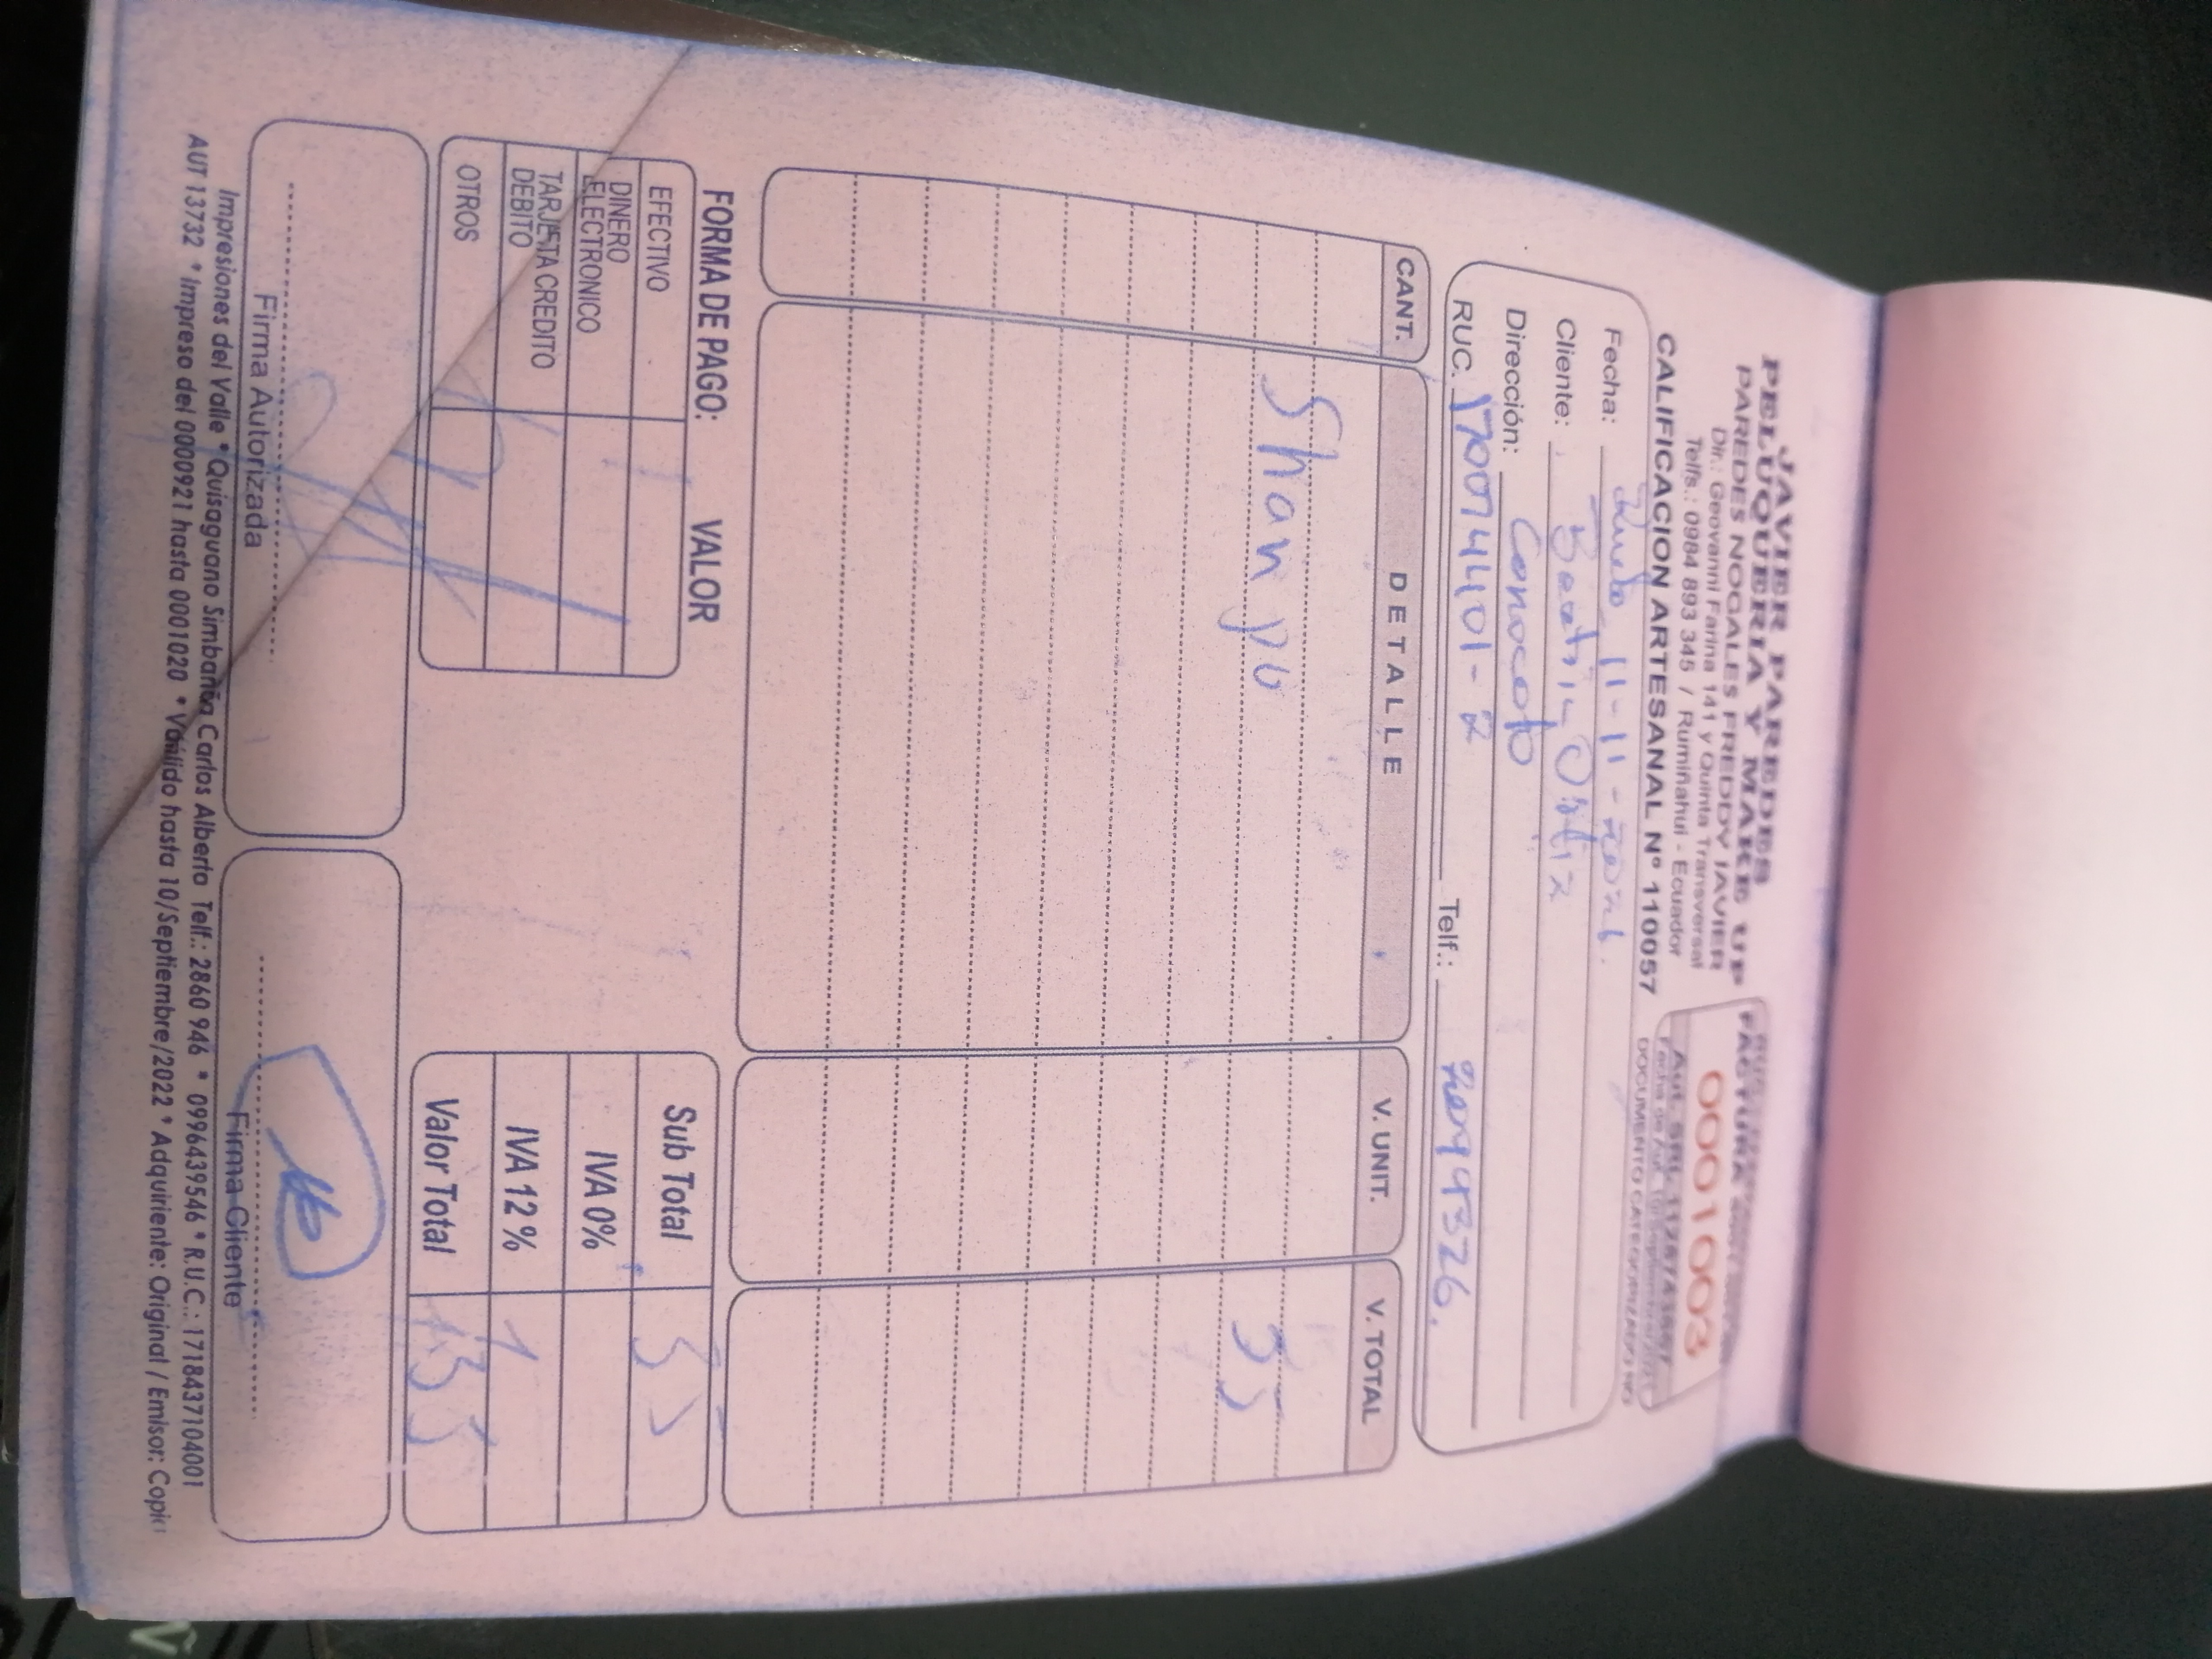 JAVIER PAREDES
PELUQUERIA Y MAKE UP
PAREDES NOGALES FREDDY JAVIER
Dir.: Geovanni Farina 141 y Quinta Transversal
Telfs.: 0984 893 345 / Rumiñahui - Ecuador
CALIFICACION ARTESANAL Nº 110057
FACTURA
0001003
Aut. SRI.
DOCUMENTO CATEGORIZADO NO
Fecha: 11-11-
Cliente: Beatriz Ortiz
Dirección: Conocoto
RUC. 170074401-2 Telf.:
CANT. DETALLE V. UNIT. V. TOTAL
Shanpo 35
FORMA DE PAGO: VALOR
EFECTIVO
DINERO ELECTRONICO
TARJETA CREDITO DEBITO
OTROS
Sub Total 35
IVA 0%
IVA 12 %
Valor Total 35
Firma Autorizada
Firma Cliente
Impresiones del Valle * Quisaguano Simbaña Carlos Alberto Telf.: 2860 946 * 0996439546 * R.U.C.: 1718437104001
AUT 13732 * Impreso del 0000921 hasta 0001020 * Válido hasta 10/Septiembre/2022 * Adquiriente: Original / Emisor: Copia